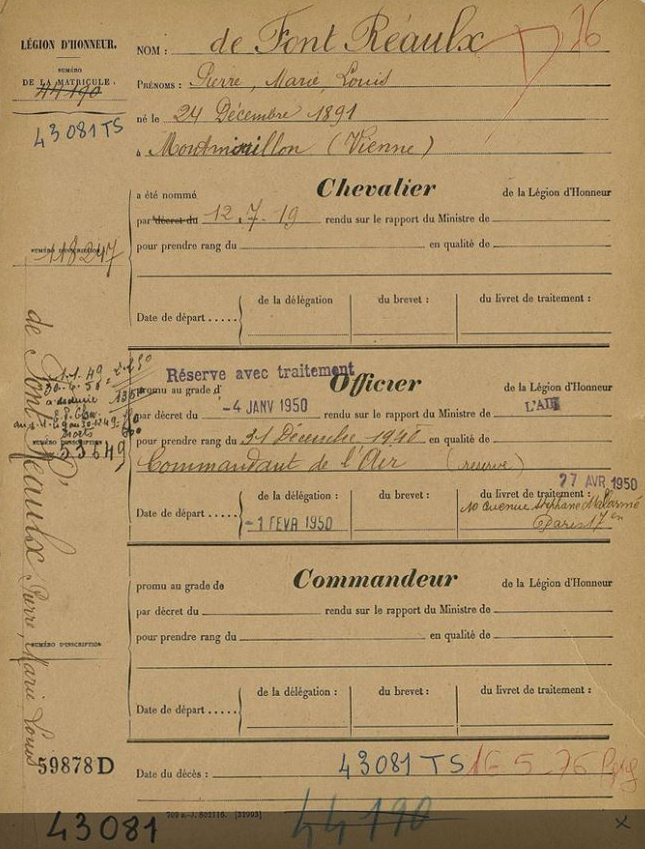 LÉGION D'HONNEUR.
NUMÉRO
DE LA MATRICULE.
44190
43081 TS
NOM : de Font Réaulx
76
PRÉNOMS : Pierre, Marie, Louis
né le 24 Décembre 1891
à Montmorillon (Vienne)
Chevalier
a été nommé
de la Légion d'Honneur
par décret du 12.7.19 rendu sur le rapport du Ministre de
NUMÉRO D'INSCRIPTION
118247
pour prendre rang du en qualité de
Date de départ.....
de la délégation
du brevet :
du livret de traitement :
Réserve avec traitement
Officier
promu au grade d'
de la Légion d'Honneur
par décret du -4 JANV 1950 rendu sur le rapport du Ministre de L'AIR
1.1.49
NUMÉRO D'INSCRIPTION
53649
pour prendre rang du 31 Décembre 1940 en qualité de
Commandant de l'Air (réserve)
27 AVR 1950
Date de départ.....
de la délégation :
-1 FEVR 1950
du brevet :
du livret de traitement :
10 avenue Stéphane Mallarmé
Paris 17 en
Commandeur
promu au grade de
de la Légion d'Honneur
par décret du rendu sur le rapport du Ministre de
pour prendre rang du en qualité de
NUMÉRO D'INSCRIPTION
Date de départ.....
de la délégation :
du brevet :
du livret de traitement :
de Font Réaulx Pierre, Marie, Louis
59878 D
Date du décès : 43081 TS 16-5-76
709 z.-J. 802116. [32993]
43081
44190